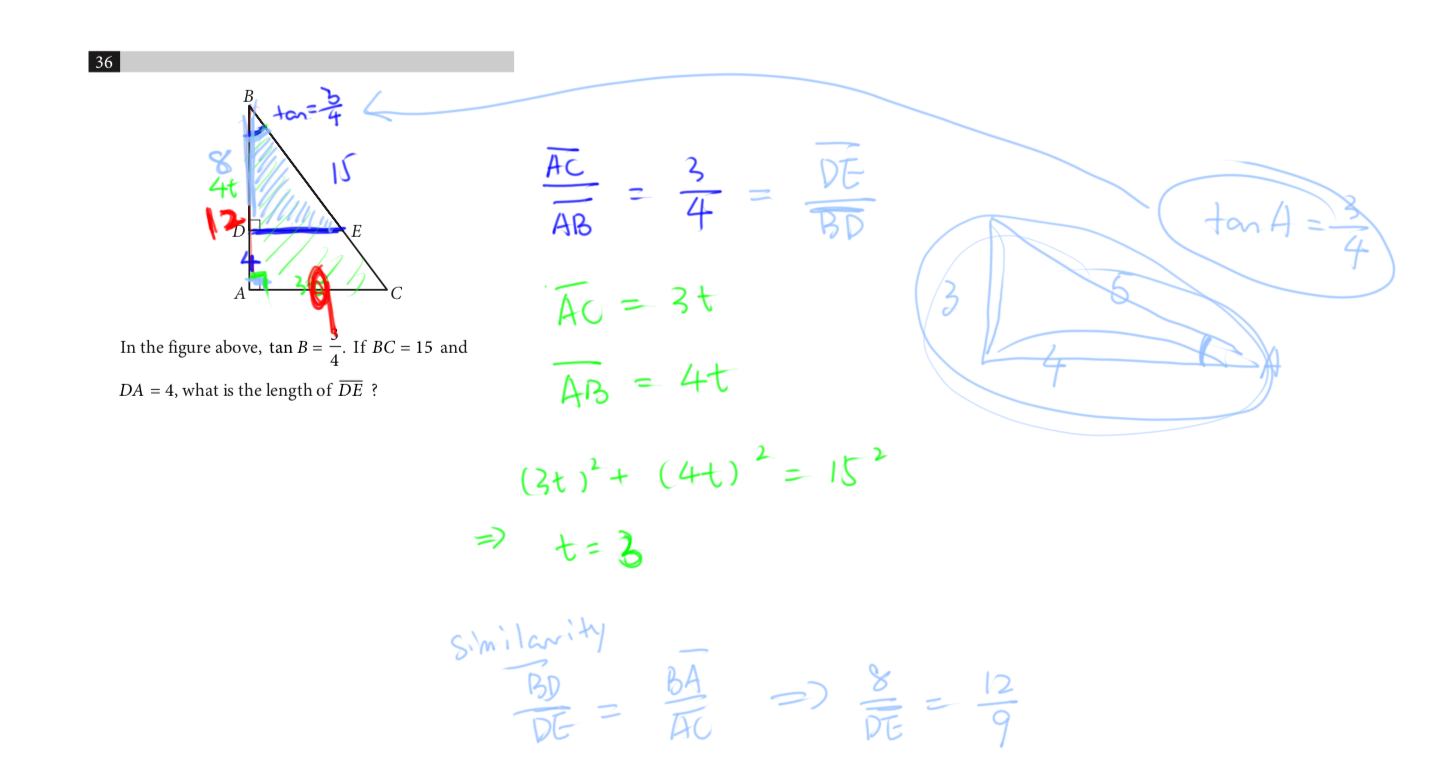 36
B
tan = 3/4
8
15
4t
12
D
E
4
A
9
C
In the figure above, tan B = 3/4. If BC = 15 and
DA = 4, what is the length of DE ?
AC/AB = 3/4 = DE/BD
AC = 3t
AB = 4t
(3t)² + (4t)² = 15²
⇒ t = 3
similarity
BD/DE = BA/AC ⇒ 8/DE = 12/9
tan A = 3/4
3
5
4
A